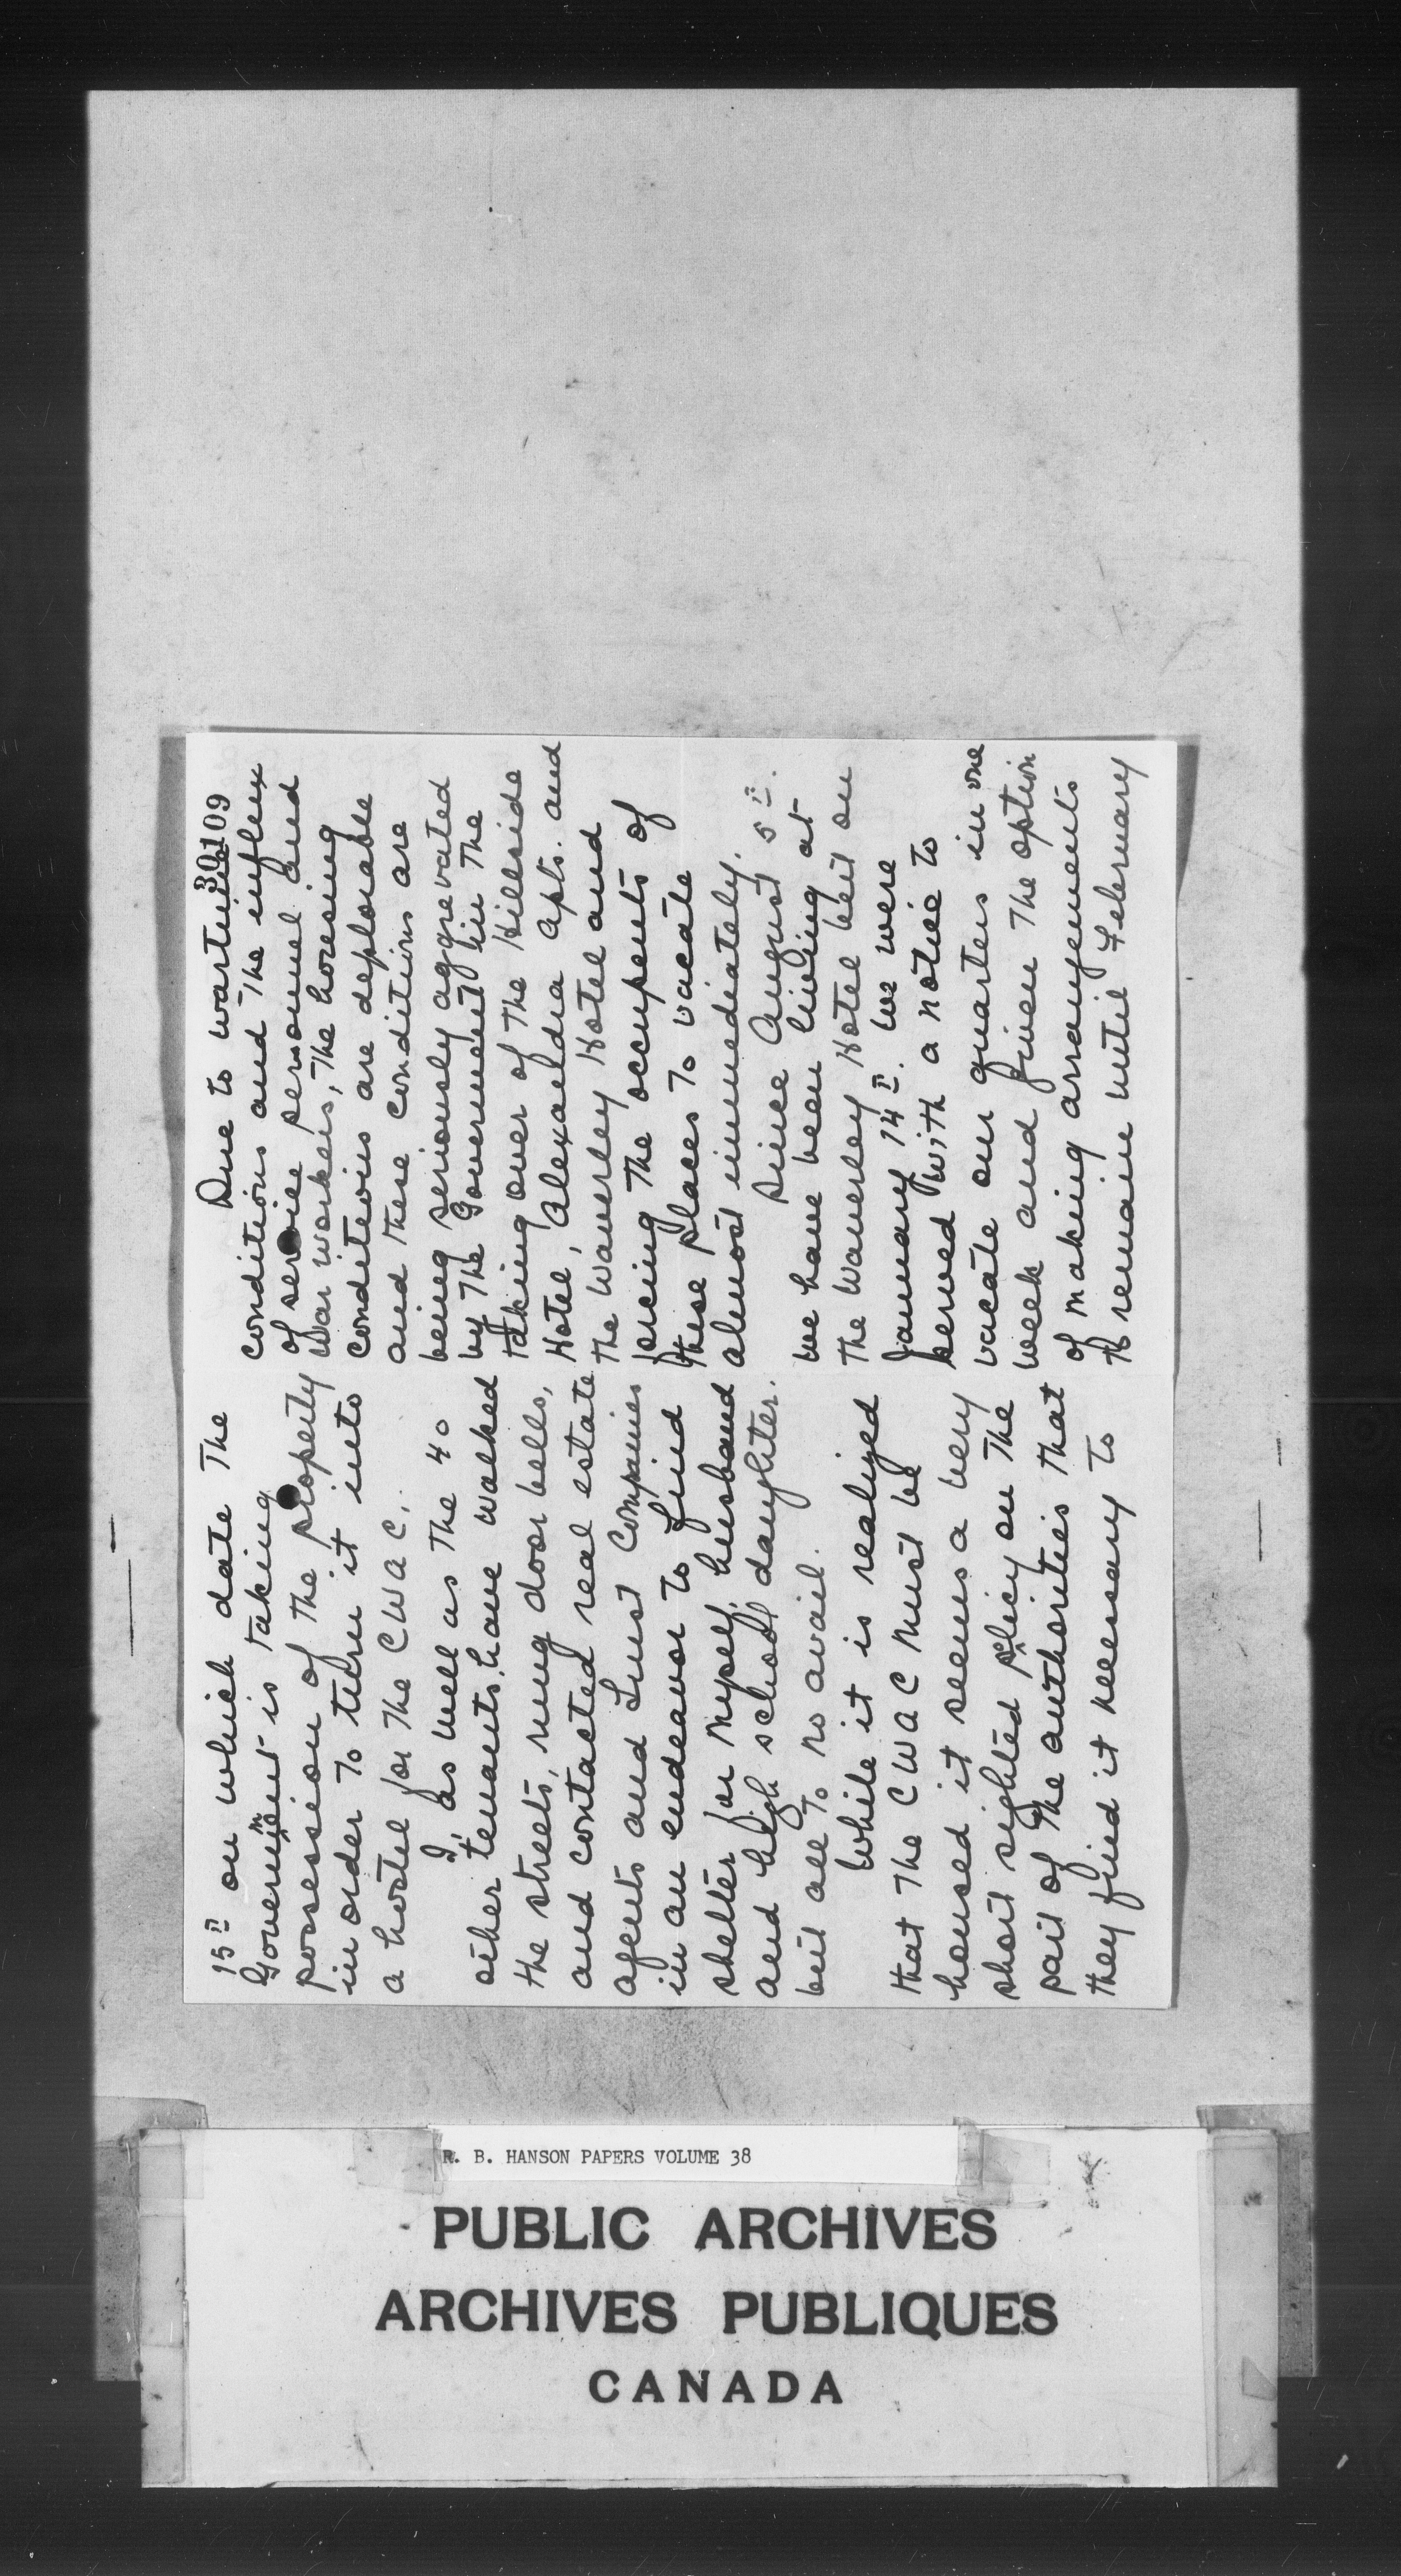 30109
Due to wartime
conditions and the influx
of service personnel and
war workers, the housing
conditions are deplorable
and these conditions are
being seriously aggrevated
by the Goverment in the
taking over of the Hillside
Hotel, Alexandra Apts. and
the Waverley Hotel and
forcing the occupents of
these places to vacate
almost immediately.
Since August 5th.
we have been living at
the Waverley Hotel but on
January 14th. we were
served with a notice to
vacate our quarters in one
week and given the option
of making arrangements
to remain until February
15th on which date the
Government is taking
possession of the property
in order to turn it into
a hostel for the CWAC.
I, as well as the 40
other tenants, have walked
the streets, rung door bells,
and contacted real estate
agents and Trust Companies
in an endeavor to find
shelter for myself, husband
and high school daughter.
but all to no avail.
While it is realized
that the CWAC must be
housed it seems a very
short sighted policy on the
part of the authorities that
they find it necessary to
R. B. HANSON PAPERS VOLUME 38
PUBLIC ARCHIVES
ARCHIVES PUBLIQUES
CANADA